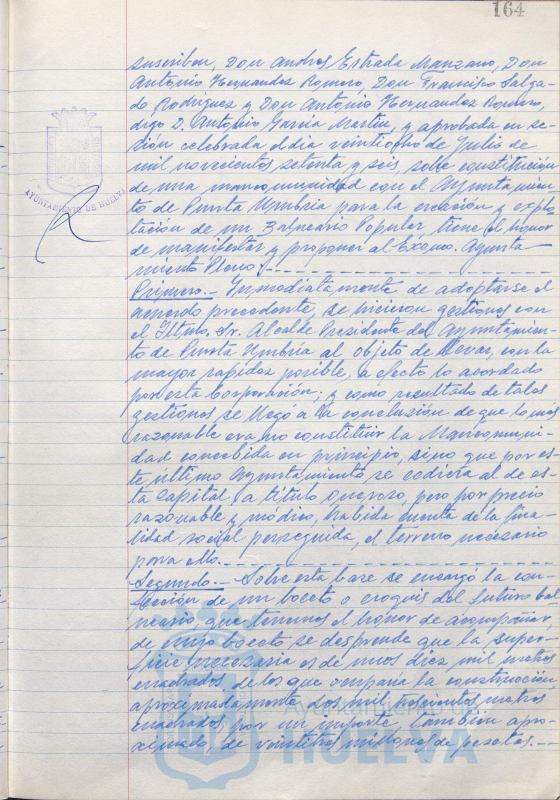 164
suscriben, Don Andrés Estrada Manzano, Don
Antonio Hernandez Romero, Don Francisco Salga-
do Rodríguez y Don Antonio Hernandez Romero,
digo D. Antonio García Martín, y aprobada en se-
sión celebrada el dia veintiocho de Julio de
mil novecientos setenta y seis, sobre constitución
de una mancomunidad con el Ayuntamien-
to de Punta Umbría para la creación y explo-
tación de un Balneario Popular, tiene el honor
de manifestar y proponer al Excmo. Ayunta-
miento Pleno:
Primero.- Inmediatamente de adoptarse el
acuerdo precedente, se hicieron gestiones con
el Iltmo. Sr. Alcalde Presidente del Ayuntamien-
to de Punta Umbría al objeto de llevar, con la
mayor rapidez posible, a efecto lo acordado
por esta Corporación; y como resultado de tales
gestiones se llegó a la conclusión de que lo más
razonable era no constituir la Mancomuni-
dad concebida en principio, sino que por es-
te último Ayuntamiento se cediera al de es-
ta Capital (a título oneroso, pero por precio
razonable y módico, habida cuenta de la fina-
lidad social perseguida, el terreno necesario
para ello.
Segundo.- Sobre esta base se encargó la con-
fección de un boceto o croquis del futuro bal-
neario, que tenemos el honor de acompañar,
de cuyo boceto se desprende que la super-
ficie necesaria es de unos diez mil metros
cuadrados, de los que ocuparía la construcción
aproximadamente dos mil trescientos metros
cuadrados, por un importe, también apro-
ximado, de veintitres millones de pesetas.
AYUNTAMIENTO DE HUELVA
Ayuntamiento de
HUELVA